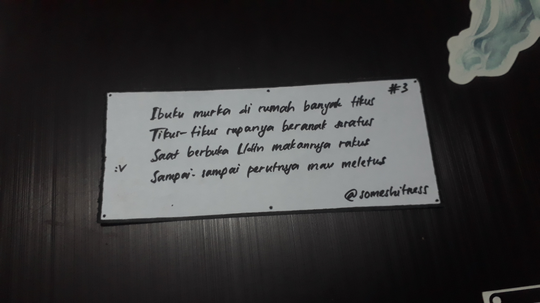 #3
Ibuku murka di rumah banyak tikus
Tikus-tikus rupanya beranak seratus
Saat berbuka Udin makannya rakus
:v
Sampai-sampai perutnya mau meletus
@someshitness